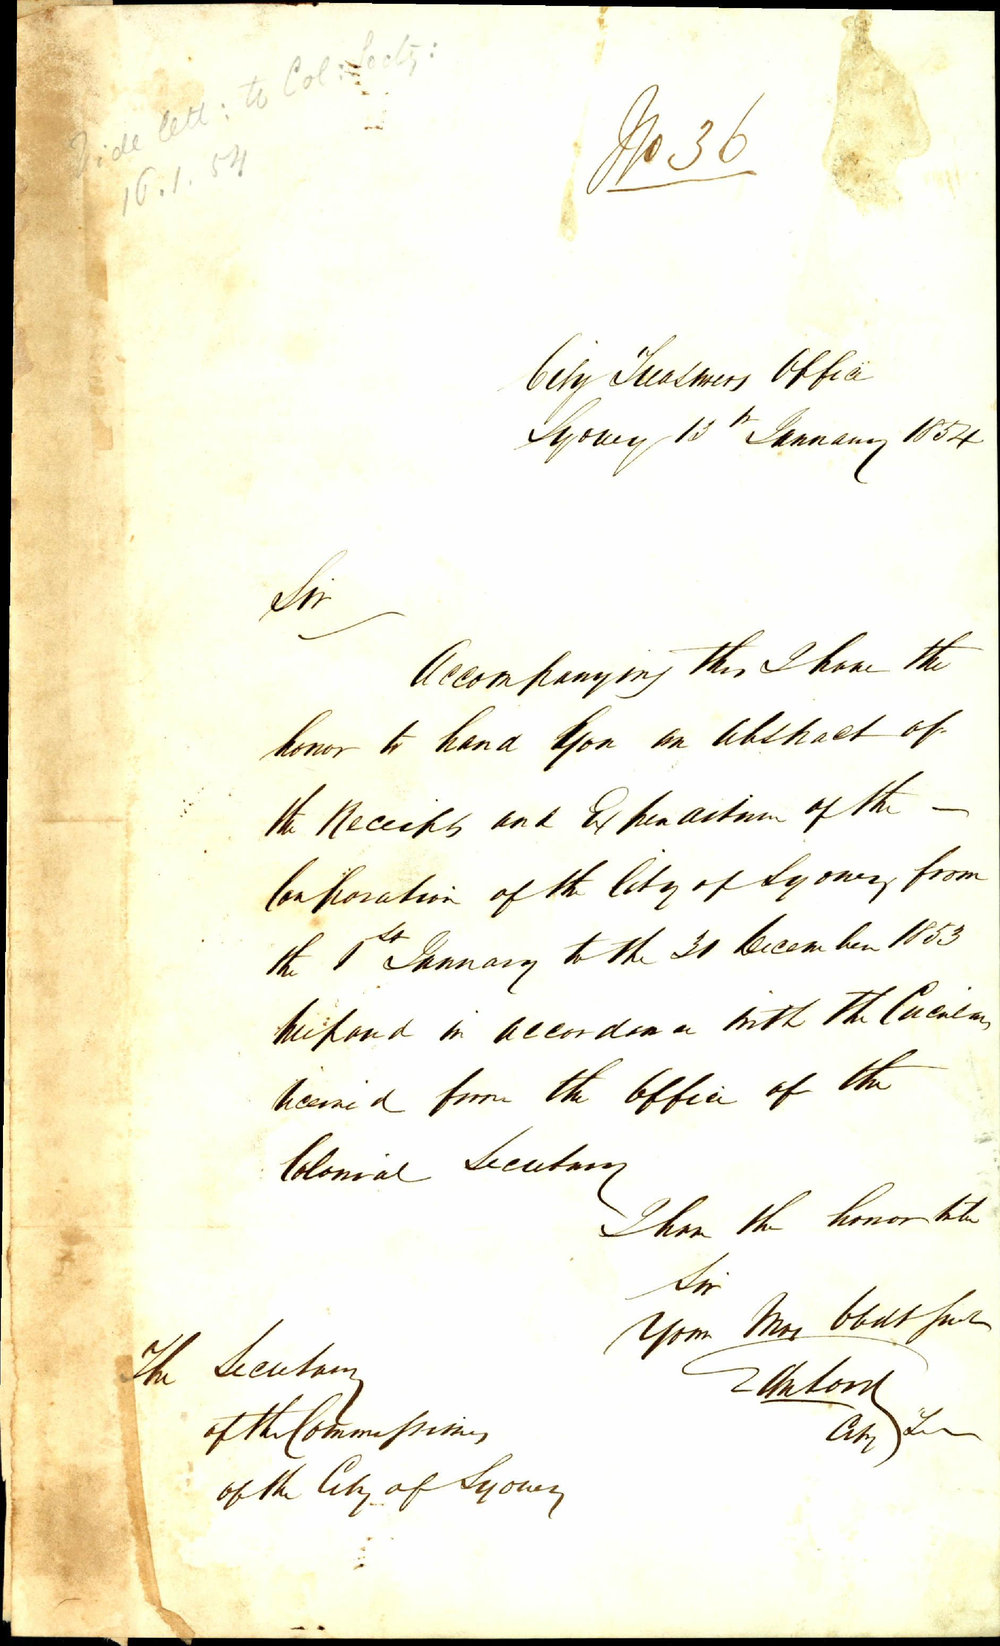 Vide lett: to Col: Secty:
16.1.54
No 36
City Treasurers Office
Sydney 13th January 1854
Sir
Accompanying this I have the
honor to hand you an Abstract of
the Receipts and Expenditure of the —
Corporation of the City of Sydney, from
the 1st January to the 31 December 1853
prepared in accordance with the Circular
received from the Office of the
Colonial Secretary
I have the honor to be
Sir
Your Mos Obdt Servt
City Tr
The Secretary
of the Commissioners
of the City of Sydney